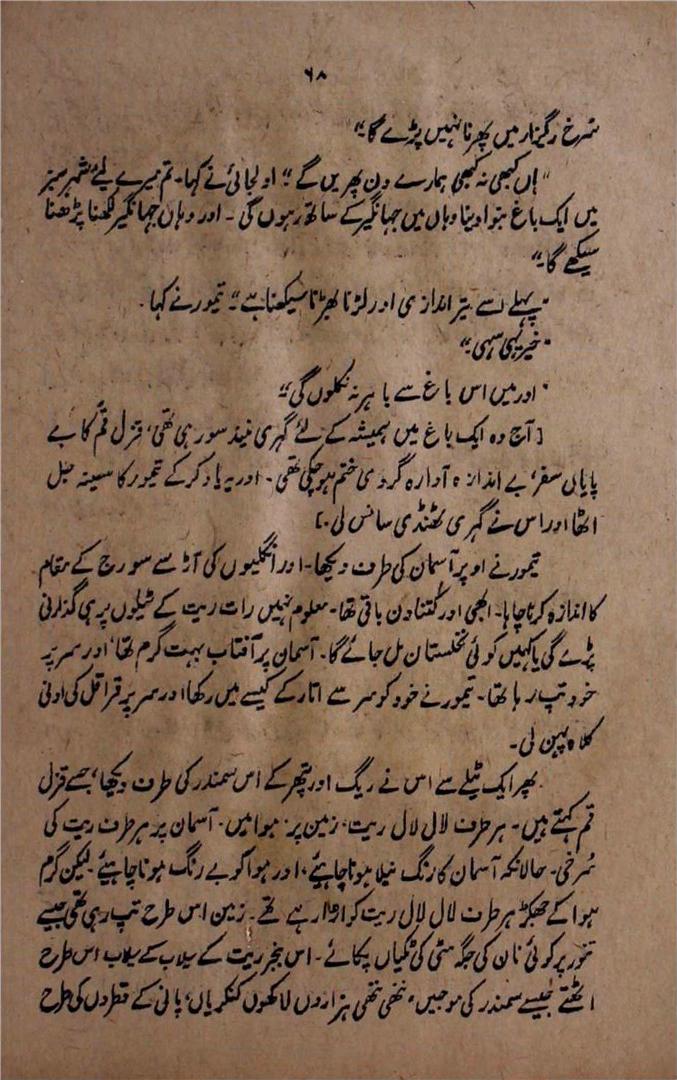 ۶۸
سُرخ ریگزار میں پھرنا نہیں پڑے گا۔"
"ہاں کبھی نہ کبھی ہمارے دن پھریں گے۔" اولجائی نے کہا۔ تم میرے لیے شہر سبز
میں ایک باغ بنوا دینا وہاں میں جہانگیر کے ساتھ رہوں گی۔ اور وہاں جہانگیر لکھنا پڑھنا
سیکھے گا۔"
"پہلے اسے تیر اندازی اور لڑنا بھڑنا سیکھنا ہے۔" تیمور نے کہا۔
"خیر یہی سہی۔"
"اور میں اس باغ سے باہر نہ نکلوں گی۔"
[آج وہ ایک باغ میں ہمیشہ کے لئے گہری نیند سو رہی تھی، قزل قُم کا بے
پایاں سفر، بے اندازہ آوارہ گردی ختم ہو چکی تھی۔ اور یہ یاد کر کے تیمور کا سینہ جل
اٹھا اور اس نے گہری ٹھنڈی سانس لی۔]
تیمور نے اوپر آسمان کی طرف دیکھا۔ اور انگلیوں کی آڑ سے سورج کے مقام
کا اندازہ کرنا چاہا۔ ابھی اور کُتنا دن باقی تھا۔ معلوم نہیں رات ریت کے ٹیلوں پر ہی گذارنی
پڑے گی یا کہیں کوئی نخلستان مل جائے گا۔ آسمان پر آفتاب بہت گرم تھا، اور سر پر
خود تپ رہا تھا۔ تیمور نے خود کو سر سے اتار کے کیسے میں رکھا اور سر پر قراقل کی اونی
کلاہ پہن لی۔
پھر ایک ٹیلے سے اس نے ریگ اور پتھر کے اس سمندر کی طرف دیکھا، جسے قزل
قم کہتے ہیں۔ ہر طرف لال لال ریت، زمین پر، ہوا میں۔ آسمان پر ہر طرف ریت کی
سُرخی۔ حالانکہ آسمان کا رنگ نیلا ہونا چاہیئے، اور ہوا کو بے رنگ ہونا چاہیئے۔ لیکن گرم
ہوا کے جھکڑ ہر طرف لال لال ریت کو اڑا رہے تھے۔ زمین اس طرح تپ رہی تھی جیسے
تنور پر کوئی نان کی جگہ مٹی کی ٹکیاں پکائے۔ اس بنجر ریت کے سیلاب کے سیلاب اس طرح
اٹھتے جیسے سمندر کی موجیں، ننھی ننھی ہزاروں لاکھوں کنکریاں، پانی کے قطروں کی طرح